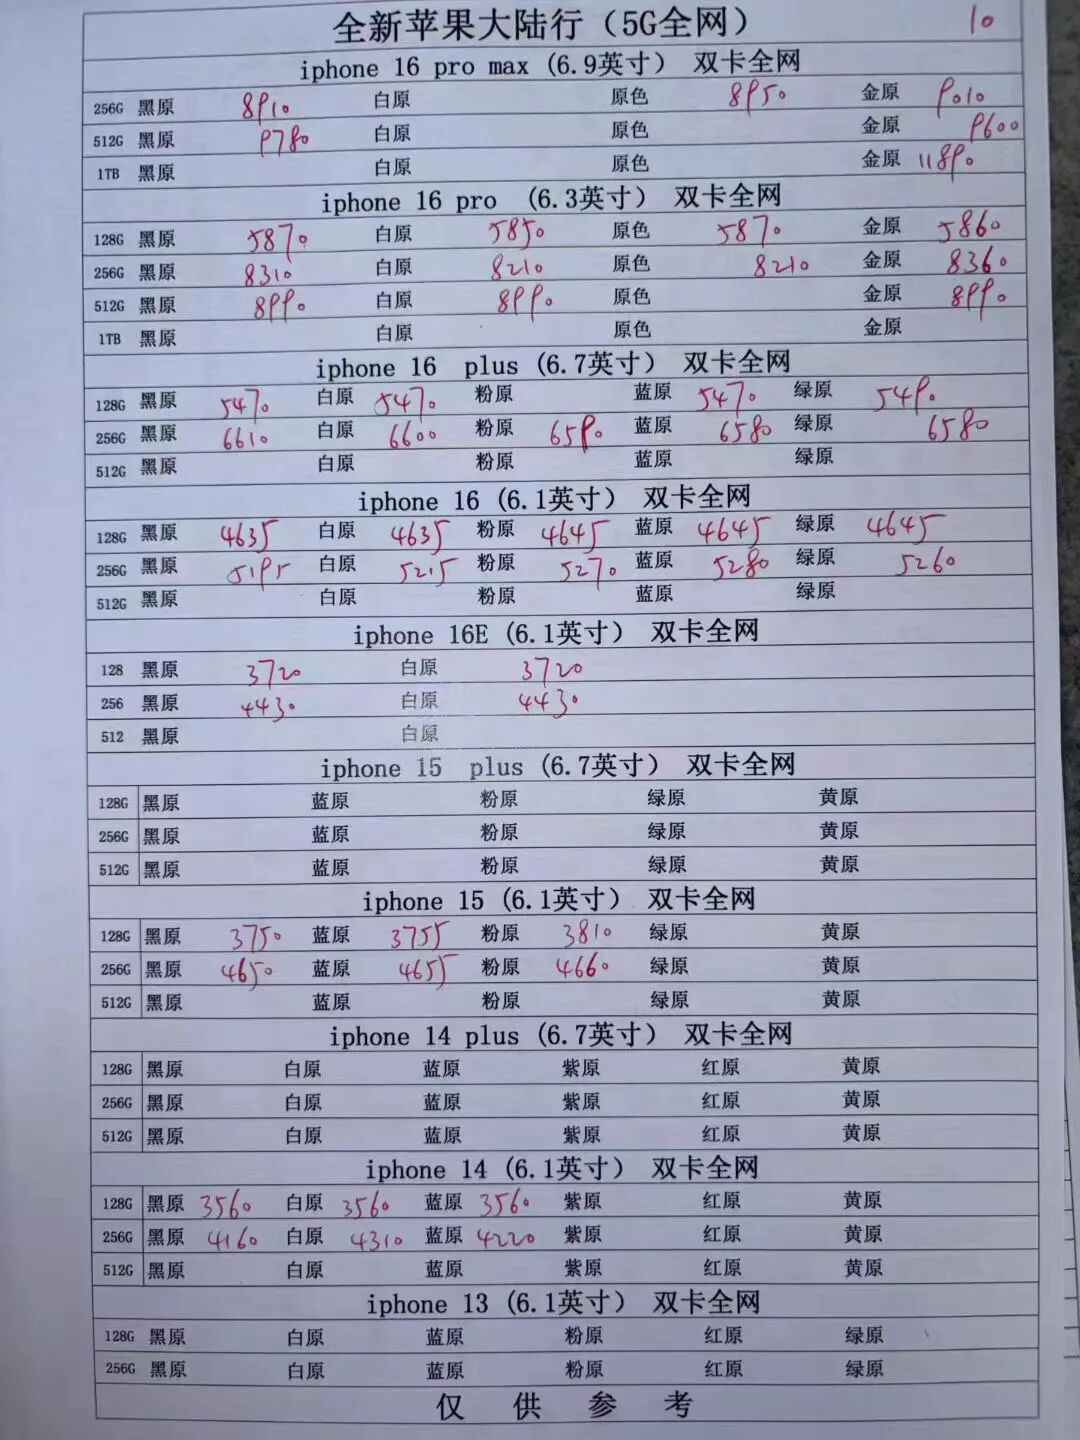 全新苹果大陆行（5G全网） 10
iphone 16 pro max (6.9英寸) 双卡全网
256G 黑原 8910 白原 原色 8950 金原 9010
512G 黑原 9780 白原 原色 金原 9600
1TB 黑原 白原 原色 金原 11890
iphone 16 pro (6.3英寸) 双卡全网
128G 黑原 5870 白原 5850 原色 5870 金原 5860
256G 黑原 8310 白原 8210 原色 8210 金原 8360
512G 黑原 8990 白原 8990 原色 金原 8990
1TB 黑原 白原 原色 金原
iphone 16 plus (6.7英寸) 双卡全网
128G 黑原 5470 白原 5470 粉原 蓝原 5470 绿原 5490
256G 黑原 6610 白原 6600 粉原 6590 蓝原 6580 绿原 6580
512G 黑原 白原 粉原 蓝原 绿原
iphone 16 (6.1英寸) 双卡全网
128G 黑原 4635 白原 4635 粉原 4645 蓝原 4645 绿原 4645
256G 黑原 5195 白原 5215 粉原 5270 蓝原 5280 绿原 5260
512G 黑原 白原 粉原 蓝原 绿原
iphone 16E (6.1英寸) 双卡全网
128 黑原 3720 白原 3720
256 黑原 4430 白原 4430
512 黑原 白原
iphone 15 plus (6.7英寸) 双卡全网
128G 黑原 蓝原 粉原 绿原 黄原
256G 黑原 蓝原 粉原 绿原 黄原
512G 黑原 蓝原 粉原 绿原 黄原
iphone 15 (6.1英寸) 双卡全网
128G 黑原 3750 蓝原 3755 粉原 3810 绿原 黄原
256G 黑原 4650 蓝原 4655 粉原 4660 绿原 黄原
512G 黑原 蓝原 粉原 绿原 黄原
iphone 14 plus (6.7英寸) 双卡全网
128G 黑原 白原 蓝原 紫原 红原 黄原
256G 黑原 白原 蓝原 紫原 红原 黄原
512G 黑原 白原 蓝原 紫原 红原 黄原
iphone 14 (6.1英寸) 双卡全网
128G 黑原 3560 白原 3560 蓝原 3560 紫原 红原 黄原
256G 黑原 4160 白原 4310 蓝原 4220 紫原 红原 黄原
512G 黑原 白原 蓝原 紫原 红原 黄原
iphone 13 (6.1英寸) 双卡全网
128G 黑原 白原 蓝原 粉原 红原 绿原
256G 黑原 白原 蓝原 粉原 红原 绿原
仅 供 参 考